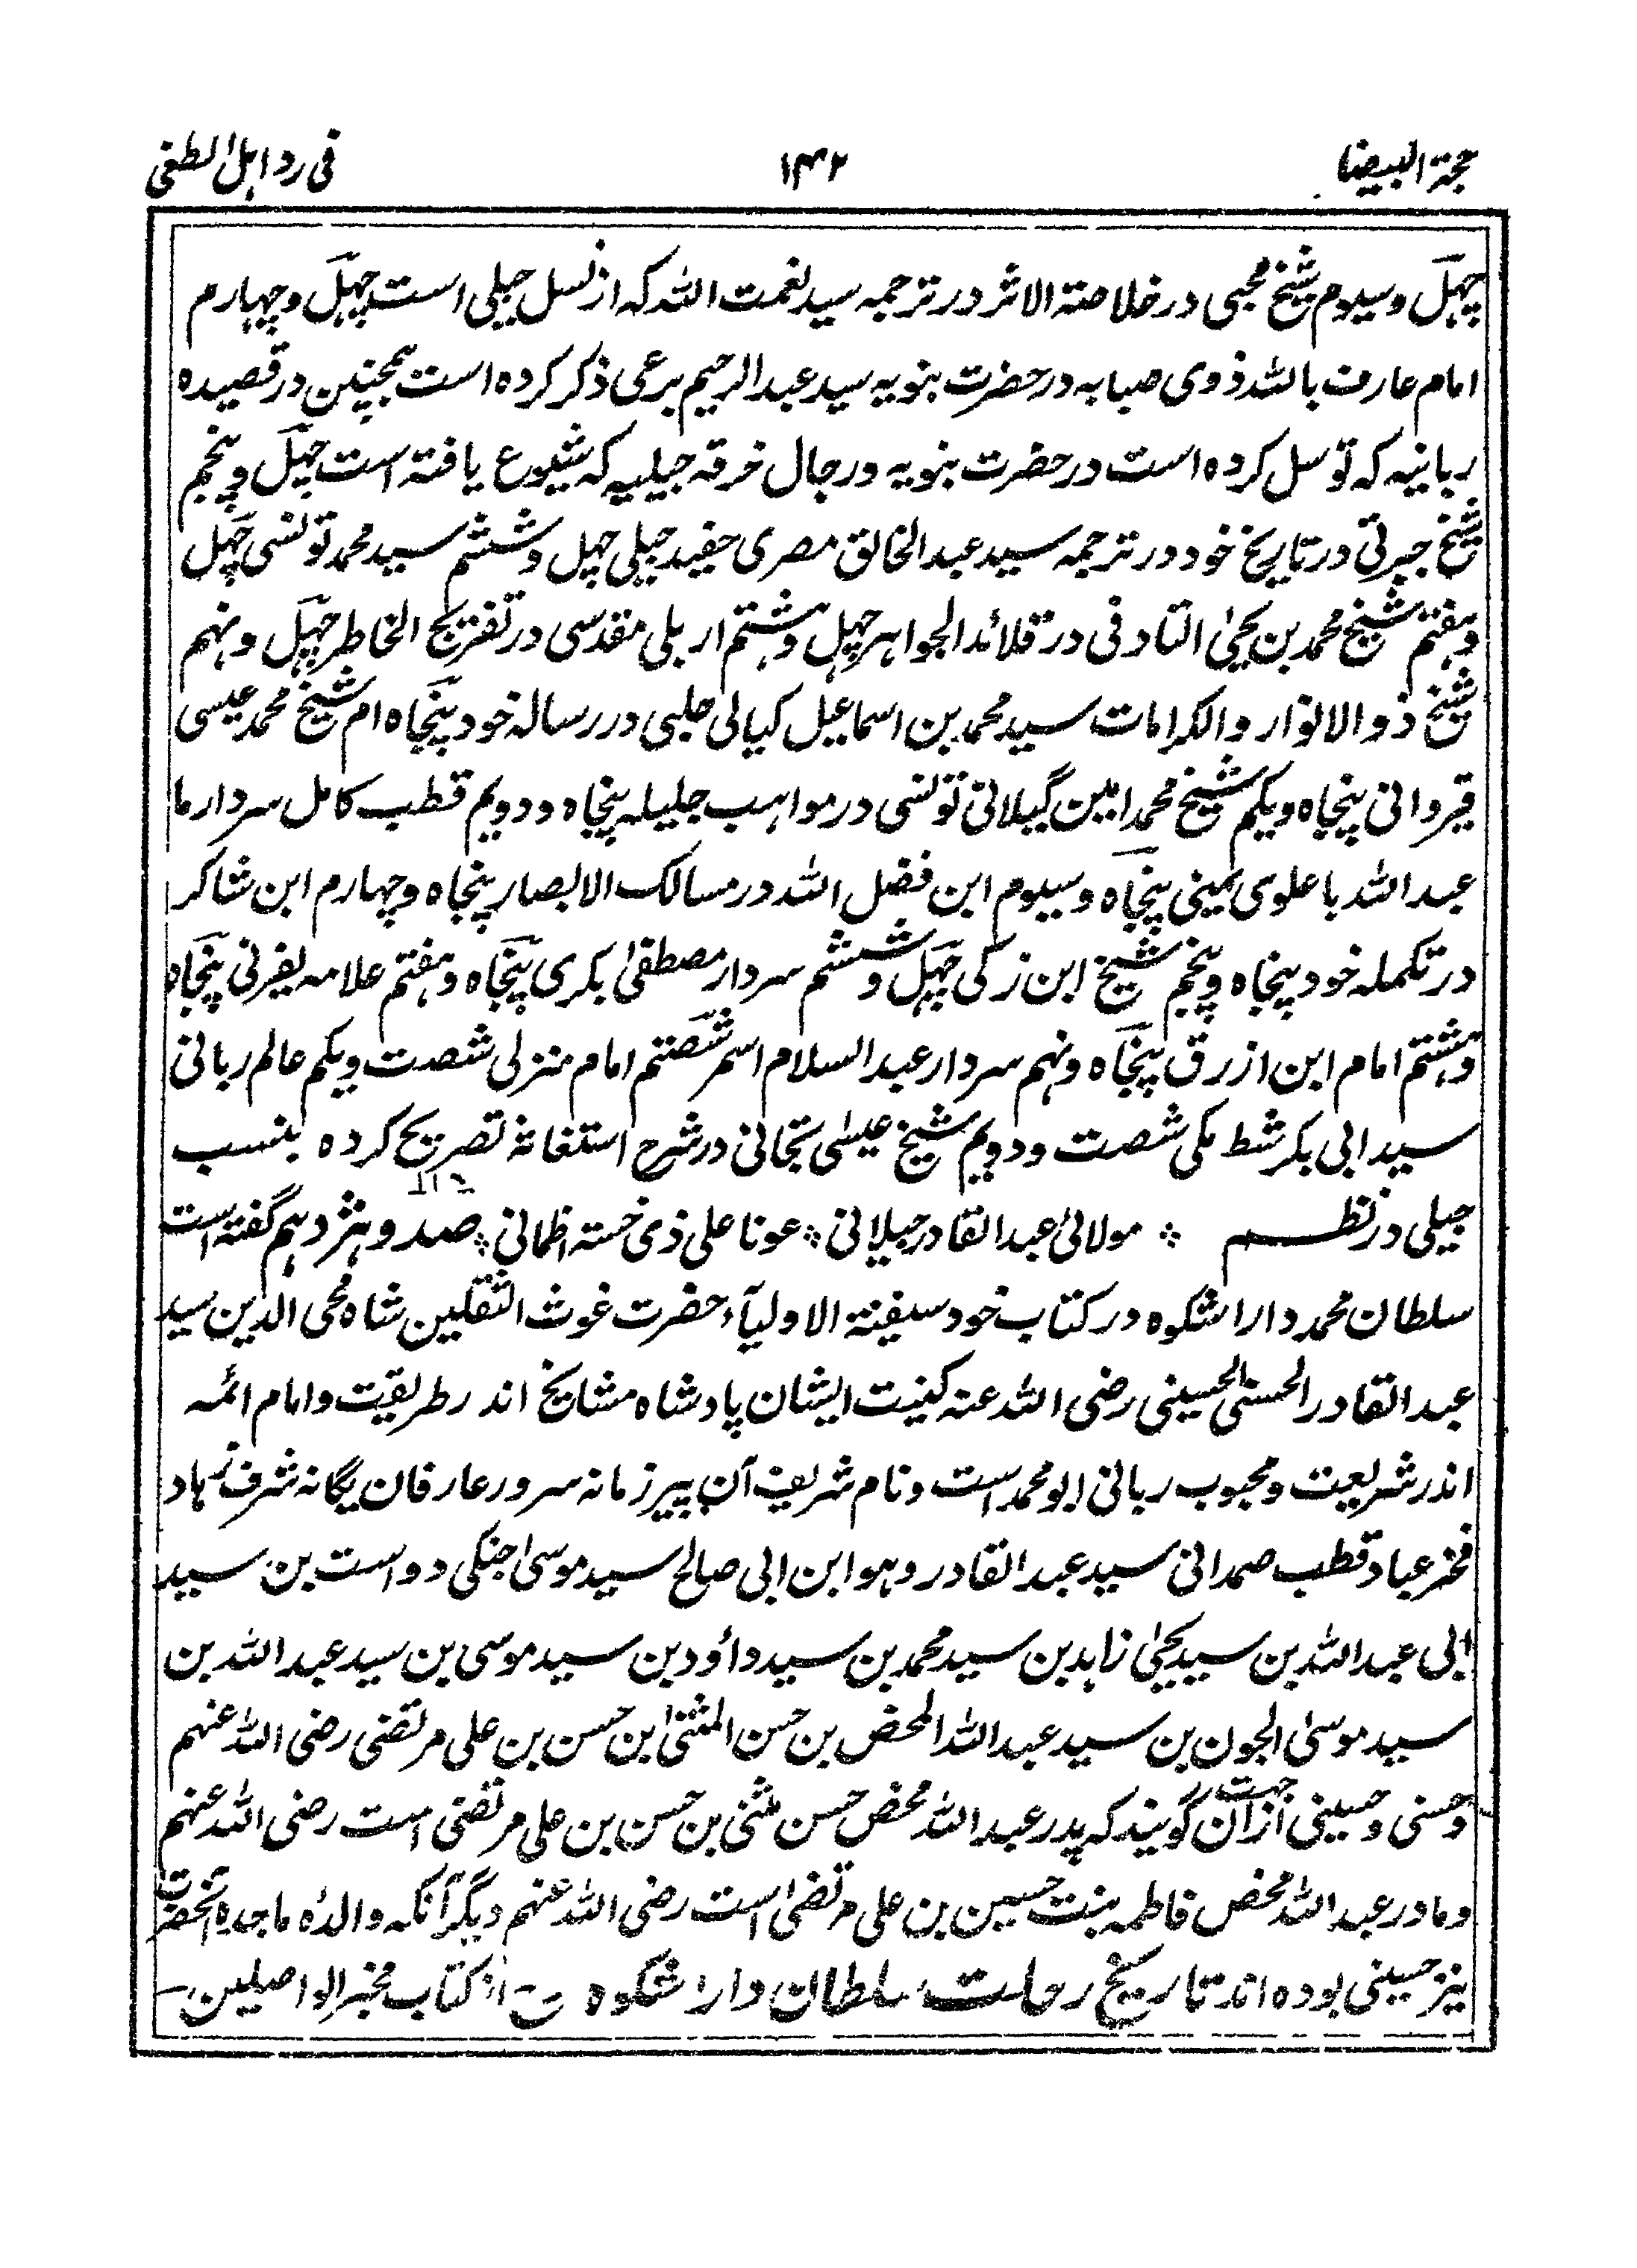 حجة البیضا ۱۴۲ فی رد اہل الطغی
چہل وسیوم شیخ محبی در خلاصة الاثر در ترجمہ سید نعمت اللہ کہ از نسل جیلی است چہل و چہارم
امام عارف باللہ ذوی صبابہ در حضرت بنویہ سید عبد الرحیم برعی ذکر کردہ است ہمچنین در قصیدہ
ربانیہ کہ توسل کردہ است در حضرت بنویہ ورجال خرقہ جیلیہ کہ شیوع یافتہ است چہل و پنجم
شیخ جبرتی در تاریخ خود در ترجمہ سید عبد الخالق مصری حفید جیلی چہل وششم سید محمد تونسی چہل
وہفتم شیخ محمد بن یحیٰ التادفی در قلائد الجواہر چہل وہشتم اربلی مقدسی در تفریح الخاطر چہل ونہم
شیخ ذو الانوار والکرامات سید محمد بن اسماعیل کیالی حلبی در رسالہ خود پنجاہ ام شیخ محمد عیسی
قیروانی پنجاہ ویکم شیخ محمد امین گیلانی تونسی در مواہب جلیلہ پنجاہ ودویم قطب کامل سردار ما
عبد اللہ باعلوی یمینی پنجاہ وسیوم ابن فضل اللہ در مسالک الابصار پنجاہ وچہارم ابن شاکر
در تکملہ خود پنجاہ وپنجم شیخ ابن زکی چہل وششم سردار مصطفیٰ بکری پنجاہ وہفتم علامہ یفرنی پنجاہ
وہشتم امام ابن ازرق پنجاہ ونہم سردار عبد السلام اسمر شصتم امام منزلی شصت ویکم عالم ربانی
سید ابی بکر شط مکی شصت ودویم شیخ عیسٰی تجانی در شرح استغاثہ تصریح کردہ بنسب
جیلی در نظم ؞ مولائی عبد القادر جیلانی ؞ عونا علی ذی خستہ اظمانی ؞ صد و ہژدہم گفتہ است
سلطان محمد دارا شکوہ در کتاب خود سفینة الاولیآء حضرت غوث الثقلین شاہ محی الدین سید
عبد القادر الحسنی الحسینی رضی اللہ عنہ کنیت ایشان پادشاہ مشایخ اند ر طریقت وامام ائمہ
اندر شریعت ومحبوب ربانی ابو محمد است ونام شریف آن پیر زمانہ سرور عارفان یگانہ شرف نہاد
فخر عباد قطب صمدانی سید عبد القادر وہو ابن ابی صالح سید موسیٰ جنکی دو است بن سید
ابی عبد اللہ بن سید یحیٰ زاہد بن سید محمد بن سید داؤد بن سید موسی بن سید عبد اللہ بن
سید موسیٰ الجون بن سید عبد اللہ المحض بن حسن المثنیٰ بن حسن بن علی مرتضی رضی اللہ عنہم
وحسنی وحسینی از آن جہت گویند کہ پدر عبد اللہ محض حسن مثنی بن حسن بن علی مرتضی است رضی اللہ عنہم
ومادر عبد اللہ محض فاطمہ بنت حسین بن علی مرتضیٰ است رضی اللہ عنہم دیگر آنکہ والدہٴ ماجدہ آنحضرت
نیز حسینی بودہ اند تاریخ رحلت سلطان دارا شکوہ از کتاب مخبر الواصلین